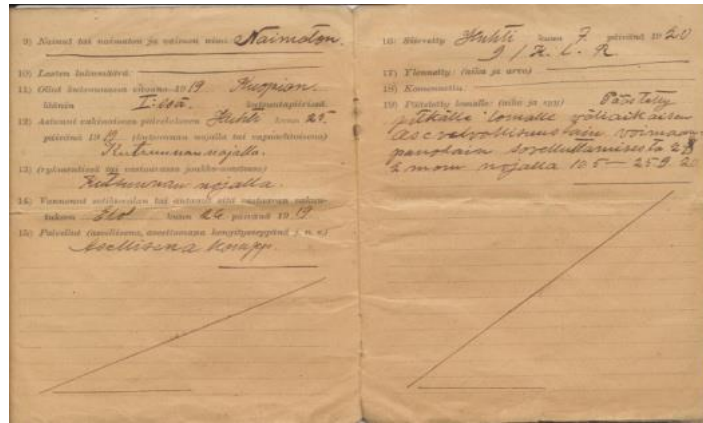 9) Nainut tai naimaton ja vaimon nimi Naimaton.
10) Lasten lukumäärä:
11) Ollut kutsunnassa vuonna 1919 Kuopion
läänin I:ssä kutsuntapiirissä.
12) Astunut vakinaiseen palvelukseen Huhti kuun 25
päivänä 1919 (kutsunnan nojalla tai vapaaehtoisena)
Kutsunnan nojalla.
13) (rykmentissä tai vastaavassa joukko-osastossa)
Kutsunnan nojalla.
14) Vannonut sotilasvalan tai antanut sitä vastaavan vakuutuksen
Elo kuun 24 päivänä 1919
15) Palvellut (aseellisena, aseettomana j. n. e.)
Aseellisena
16) Siirretty Huhti kuun 7 päivänä 1920
9/K. L. R
17) Ylennetty: (aika ja arvo)
18) Komennettu:
19) Päästetty lomalle: (aika ja syy) Päästetty
pitkälle lomalle väliaikaisen
asevelvollisuuslain voimaan
panolain sovelluttamisesta 2 §
2 mom nojalla 10.5 — 25.9.20